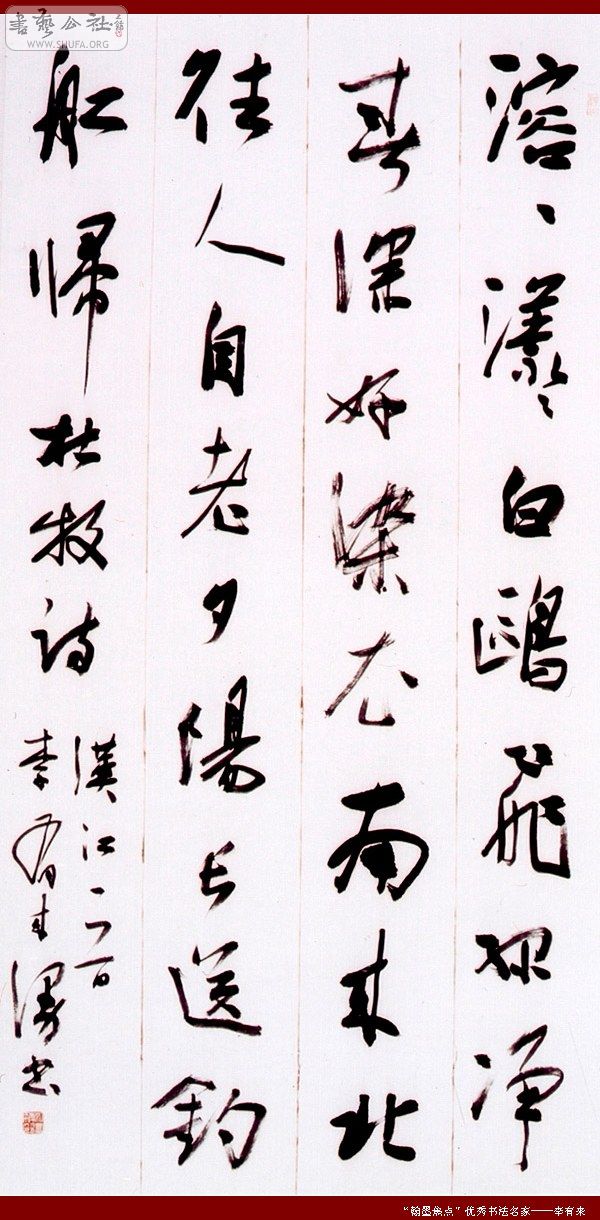 書藝公社
WWW.SHUFA.ORG
溶〻漾〻白鷗飛緑净
春深好染衣南来北
往人自老夕陽长送釣
舩歸杜牧詩
漢江一首
李有来漫书
“翰墨焦点”优秀书法名家——李有来